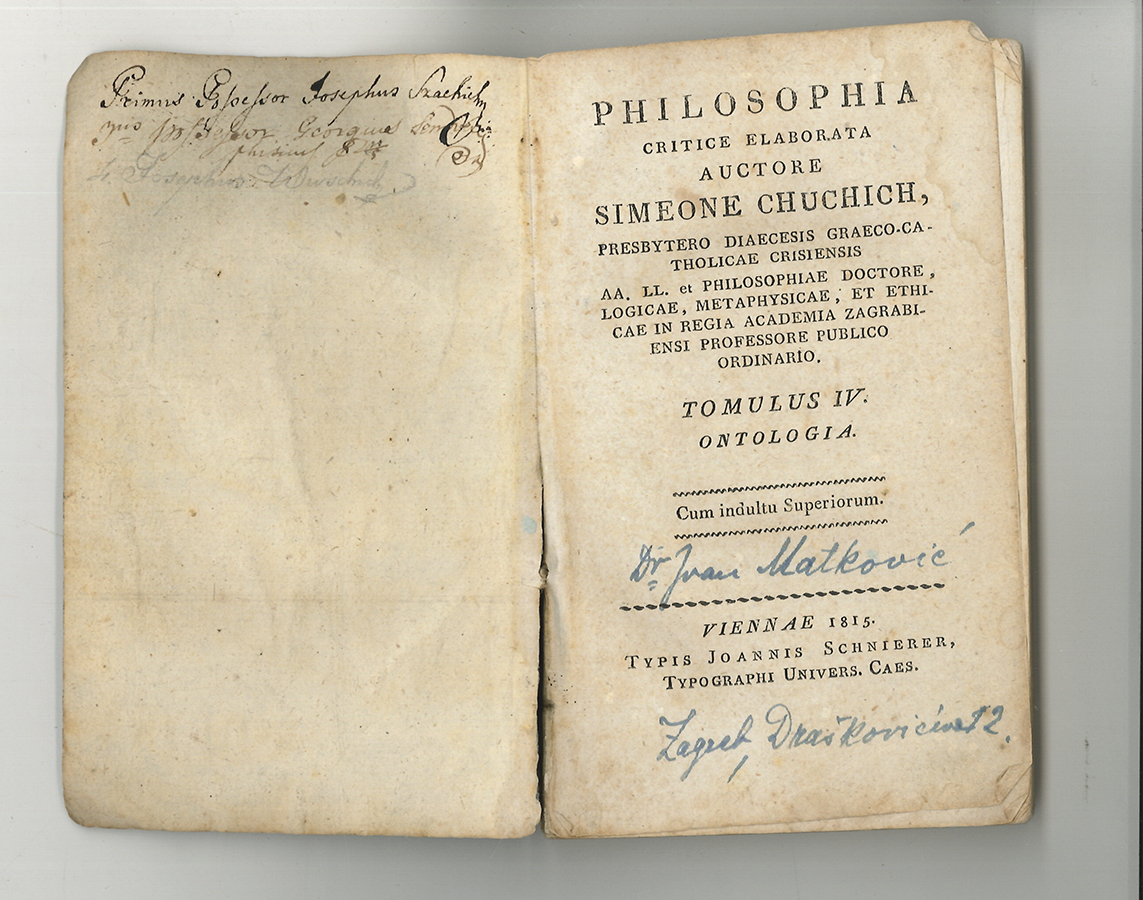 Primus Possessor Josephus
possessor Georgius
Josephus
PHILOSOPHIA
CRITICE ELABORATA
AUCTORE
SIMEONE CHUCHICH,
PRESBYTERO DIAECESIS GRAECO-CA-
THOLICAE CRISIENSIS
AA. LL. et PHILOSOPHIAE DOCTORE,
LOGICAE, METAPHYSICAE, ET ETHI-
CAE IN REGIA ACADEMIA ZAGRABI-
ENSI PROFESSORE PUBLICO
ORDINARIO.
TOMULUS IV.
ONTOLOGIA.
Cum indultu Superiorum.
Dr Ivan Matković
VIENNAE 1815.
TYPIS JOANNIS SCHNIERER,
TYPOGRAPHI UNIVERS. CAES.
Zagreb, Draškovićeva 12.